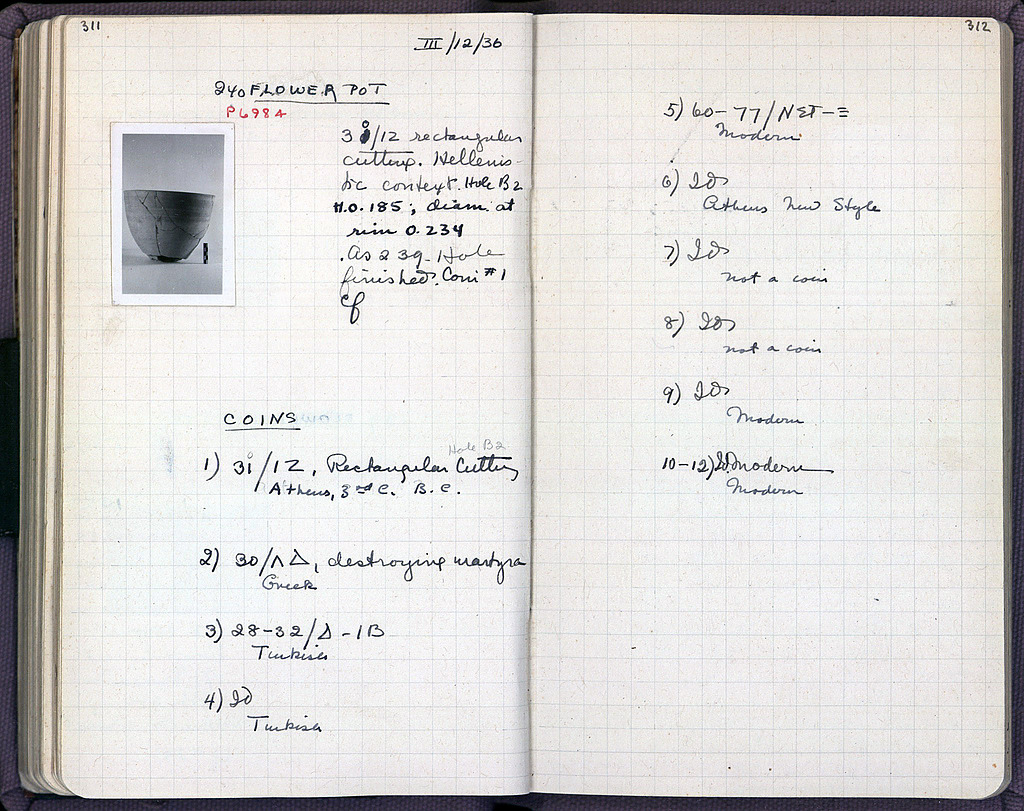 311
III/12/36
240 FLOWER POT
P 6984
3 i/12 rectangular
cutting. Hellenis-
tic context. Hole B2
H. 0.185; diam. at
rim 0.234
As 239. Hole
finished. Coin #1
cf
COINS
Hole B2
1) 3i/12, Rectangular Cutting
Athens, 3rd C. B.C.
2) 30/ΛΔ, destroying martyra
Greek
3) 28-32/Δ-1B
Turkish
4) Id
Turkish
312
5) 60-77/ΝΣΤ-Ξ
Modern
6) Id
Athens New Style
7) Id
not a coin
8) Id
not a coin
9) Id
Modern
10-12) Id. modern
Modern